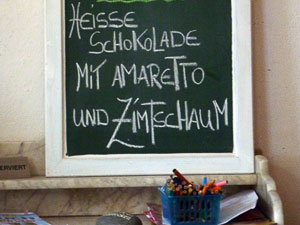 HEISSE
SCHOKOLADE
MIT AMARETTO
UND ZIMTSCHAUM
ERVIERT